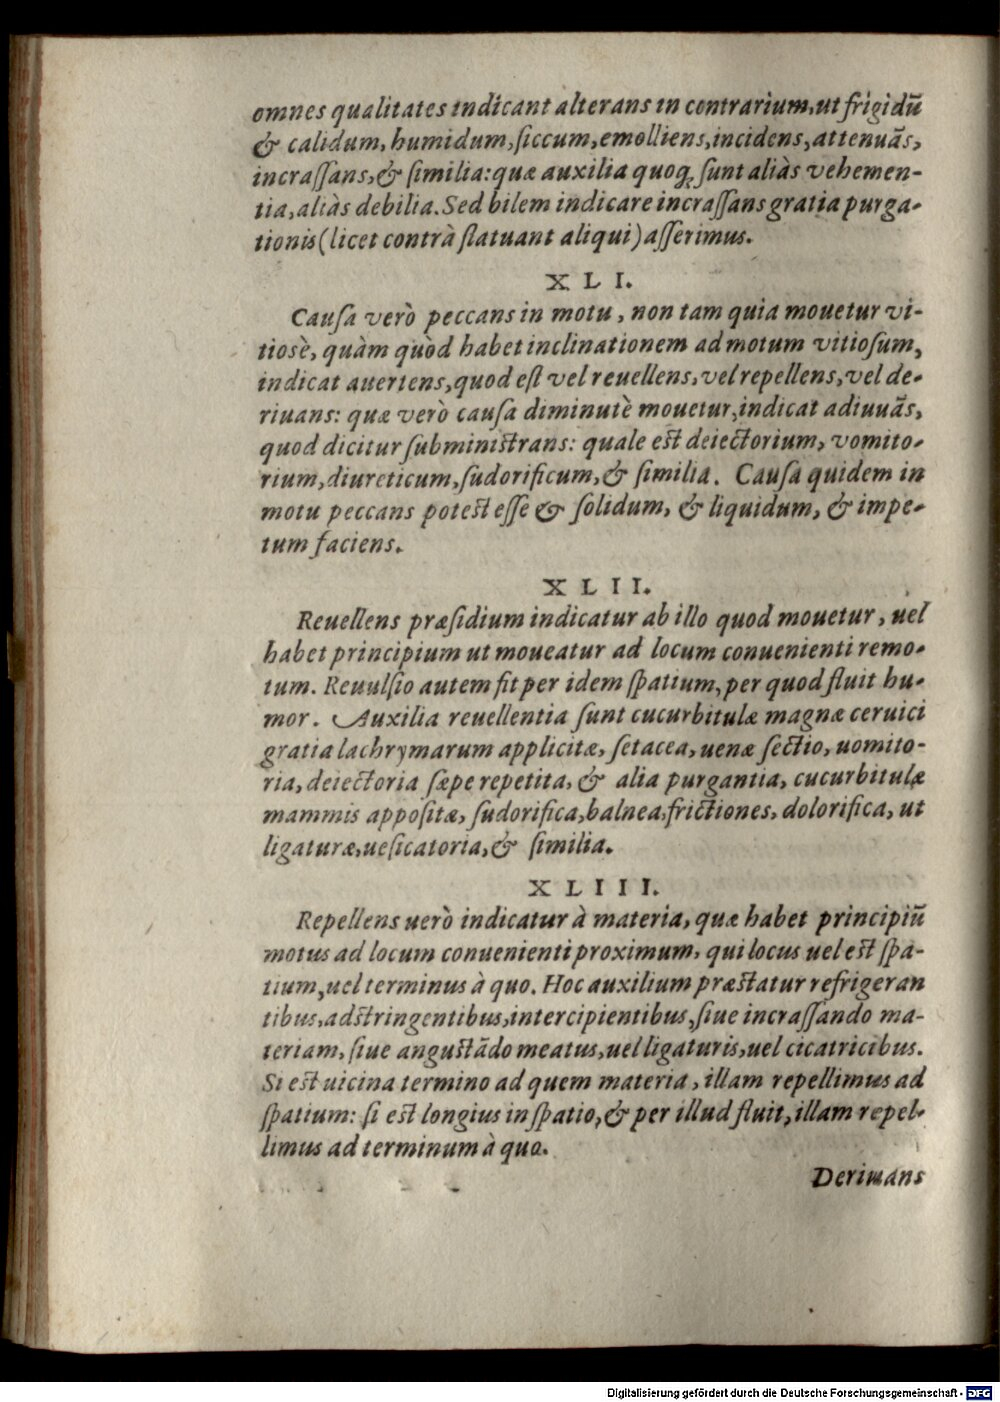 omnes qualitates indicant alterans in contrarium, ut frigidũ
& calidum, humidum, ſiccum, emolliens, incidens, attenuãs,
incraſſans, & ſimilia: quæ auxilia quoq; ſunt aliàs vehemen-
tia, aliàs debilia. Sed bilem indicare incraſſans gratia purga-
tionis (licet contrà ſtatuant aliqui) aſſerimus.
XLI.
Cauſa verò peccans in motu, non tam quia mouetur vi-
tiosè, quàm quòd habet inclinationem ad motum vitioſum,
indicat auertens, quod eſt vel reuellens, vel repellens, vel de-
riuans: quæ verò cauſa diminutè mouetur, indicat adiuuãs,
quod dicitur ſubminiſtrans: quale eſt deiectorium, vomito-
rium, diureticum, ſudorificum, & ſimilia. Cauſa quidem in
motu peccans poteſt eſſe & ſolidum, & liquidum, & impe-
tum faciens.
XLII.
Reuellens præſidium indicatur ab illo quod mouetur, uel
habet principium ut moueatur ad locum conuenienti remo-
tum. Reuulſio autem fit per idem ſpatium, per quod fluit hu-
mor. Auxilia reuellentia ſunt cucurbitulæ magnæ ceruici
gratia lachrymarum applicitæ, ſetacea, uenæ ſectio, uomito-
ria, deiectoria ſæpe repetita, & alia purgantia, cucurbitulæ
mammis appoſitæ, ſudorifica, balnea, frictiones, dolorifica, ut
ligaturæ, ueſicatoria, & ſimilia.
XLIII.
Repellens uerò indicatur à materia, quæ habet principiũ
motus ad locum conuenienti proximum, qui locus uel eſt ſpa-
tium, uel terminus à quo. Hoc auxilium præſtatur refrigeran
tibus, adſtringentibus, intercipientibus, ſiue incraſſando ma-
teriam, ſiue anguſtãdo meatus, uel ligaturis, uel cicatricibus.
Si eſt uicina termino ad quem materia, illam repellimus ad
ſpatium: ſi eſt longius in ſpatio, & per illud fluit, illam repel-
limus ad terminum à quo.
Deriuans
Digitalisierung gefördert durch die Deutsche Forschungsgemeinschaft - DFG